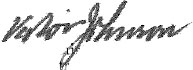 Victor Johnson